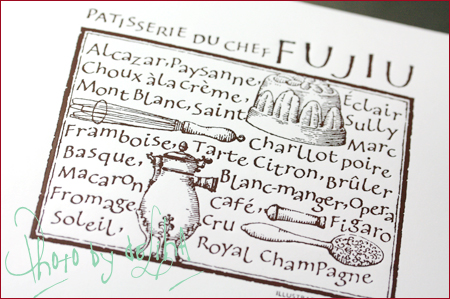 PATISSERIE DU CHEF FUJIU
Alcazar, Paysanne, Éclair
Choux à la crème, Sully
Mont Blanc, Saint Marc
Framboise, Charllot poire
Basque, Tarte Citron, Brûler
Macaron Blanc-manger, Opera
Fromage Café, Figaro
Soleil, Cru
Royal Champagne
Photo by